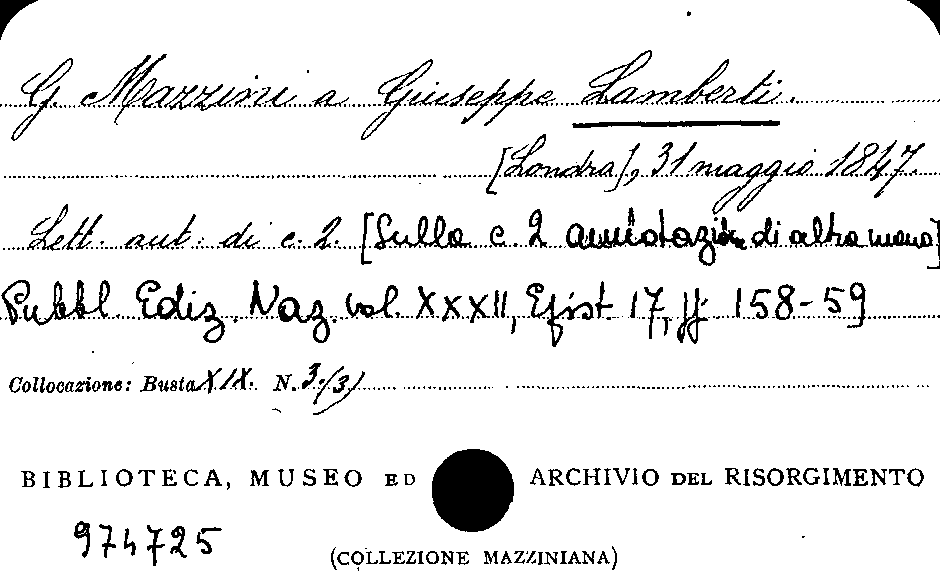 G. Mazzini a Giuseppe Lamberti.
[Londra], 31 maggio 1847.
Lett. aut. di c. 2. [Sulla c. 2 annotazione di altra mano]
Pubbl. Ediz. Naz. vol. XXXII, Epist. 17, pp. 158-59
Collocazione: Busta XIX. N. 3/(3)
BIBLIOTECA, MUSEO ED ARCHIVIO DEL RISORGIMENTO
974725
(COLLEZIONE MAZZINIANA)